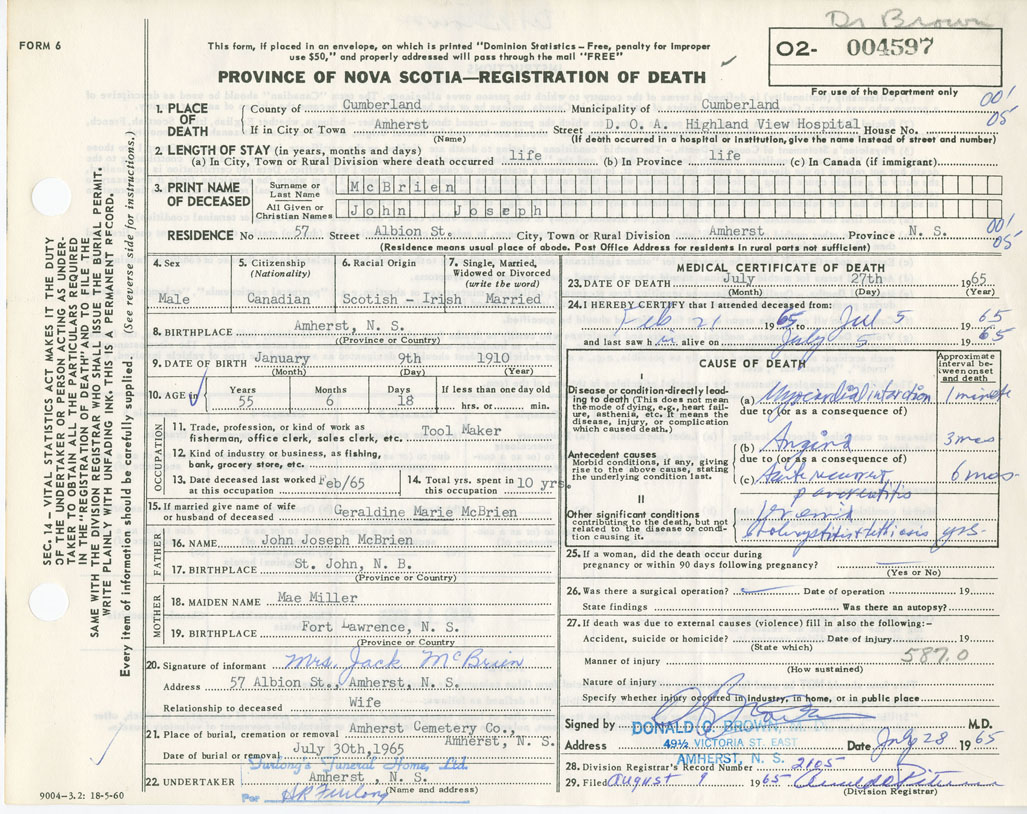 Dr Brown
FORM 6
This form, if placed in an envelope, on which is printed "Dominion Statistics—Free, penalty for improper
use $50," and properly addressed will pass through the mail "FREE"
O2- 004597
PROVINCE OF NOVA SCOTIA—REGISTRATION OF DEATH
For use of the Department only
001
05'
1. PLACE OF DEATH { County of Cumberland Municipality of Cumberland
If in City or Town Amherst Street D. O. A. Highland View Hospital House No.
(Name) (If death occurred in a hospital or institution, give the name instead of street and number)
2. LENGTH OF STAY (in years, months and days)
(a) In City, Town or Rural Division where death occurred life (b) In Province life (c) In Canada (if immigrant)
3. PRINT NAME OF DECEASED { Surname or Last Name McBrien
All Given or Christian Names John Joseph
RESIDENCE No 57 Street Albion St. City, Town or Rural Division Amherst Province N. S.
001
05'
(Residence means usual place of abode. Post Office Address for residents in rural parts not sufficient)
4. Sex 5. Citizenship (Nationality) 6. Racial Origin 7. Single, Married, Widowed or Divorced (write the word)
Male Canadian Scotish - Irish Married
8. BIRTHPLACE Amherst, N. S.
(Province or Country)
9. DATE OF BIRTH January 9th 1910
(Month) (Day) (Year)
10. AGE in Years Months Days If less than one day old
55 6 18 hrs. or min.
OCCUPATION
11. Trade, profession, or kind of work as
fisherman, office clerk, sales clerk, etc. Tool Maker
12. Kind of industry or business, as fishing,
bank, grocery store, etc.
13. Date deceased last worked at this occupation Feb/65 14. Total yrs. spent in this occupation 10 yrs.
15. If married give name of wife
or husband of deceased Geraldine Marie McBrien
FATHER
16. NAME John Joseph McBrien
17. BIRTHPLACE St. John, N. B.
(Province or Country)
MOTHER
18. MAIDEN NAME Mae Miller
19. BIRTHPLACE Fort Lawrence, N. S.
(Province or Country)
20. Signature of informant Mrs. Jack McBrien
Address 57 Albion St., Amherst, N. S.
Relationship to deceased Wife
21. Place of burial, cremation or removal Amherst Cemetery Co.,
Amherst, N. S.
Date of burial or removal July 30th, 1965
Furlong's Funeral Home, Ltd.
22. UNDERTAKER Amherst , N. S.
(Name and address)
Per Furlong
9004-3.2: 18-5-60
MEDICAL CERTIFICATE OF DEATH
23. DATE OF DEATH July 27th 1965
(Month) (Day) (Year)
24. I HEREBY CERTIFY that I attended deceased from:
Feb 21 1965 to Jul 5 1965
and last saw h alive on July 5 1965
CAUSE OF DEATH
Approximate interval between onset and death
I
Disease or condition directly leading to death (This does not mean the mode of dying, e.g., heart failure, asthenia, etc. It means the disease, injury, or complication which caused death.)
(a) Myocardial infarction 1 minute
due to (or as a consequence of)
Antecedent causes
Morbid conditions, if any, giving rise to the above cause, stating the underlying condition last.
(b) Angina 3 mos
due to (or as a consequence of)
(c) Acute recurrent 6 mos
pancreatitis
II
Other significant conditions
contributing to the death, but not related to the disease or condition causing it.
Uremia
yrs
25. If a woman, did the death occur during
pregnancy or within 90 days following pregnancy?
(Yes or No)
26. Was there a surgical operation? Date of operation 19
State findings Was there an autopsy?
27. If death was due to external causes (violence) fill in also the following:—
Accident, suicide or homicide? Date of injury 19
(State which)
587.0
Manner of injury
(How sustained)
Nature of injury
Specify whether injury occurred in industry, in home, or in public place
Signed by DONALD O. BROWN M.D.
Address 49½ VICTORIA ST. EAST Date July 28 1965
AMHERST, N. S.
28. Division Registrar's Record Number 2105
29. Filed August 9 1965
(Division Registrar)
SEC. 14—VITAL STATISTICS ACT MAKES IT THE DUTY
OF THE UNDERTAKER OR PERSON ACTING AS UNDER-
TAKER TO OBTAIN ALL THE PARTICULARS REQUIRED
IN THE "REGISTRATION OF DEATH" AND TO FILE THE
SAME WITH THE DIVISION REGISTRAR WHO SHALL ISSUE THE BURIAL PERMIT.
WRITE PLAINLY WITH UNFADING INK. THIS IS A PERMANENT RECORD.
Every item of information should be carefully supplied. (See reverse side for instructions.)